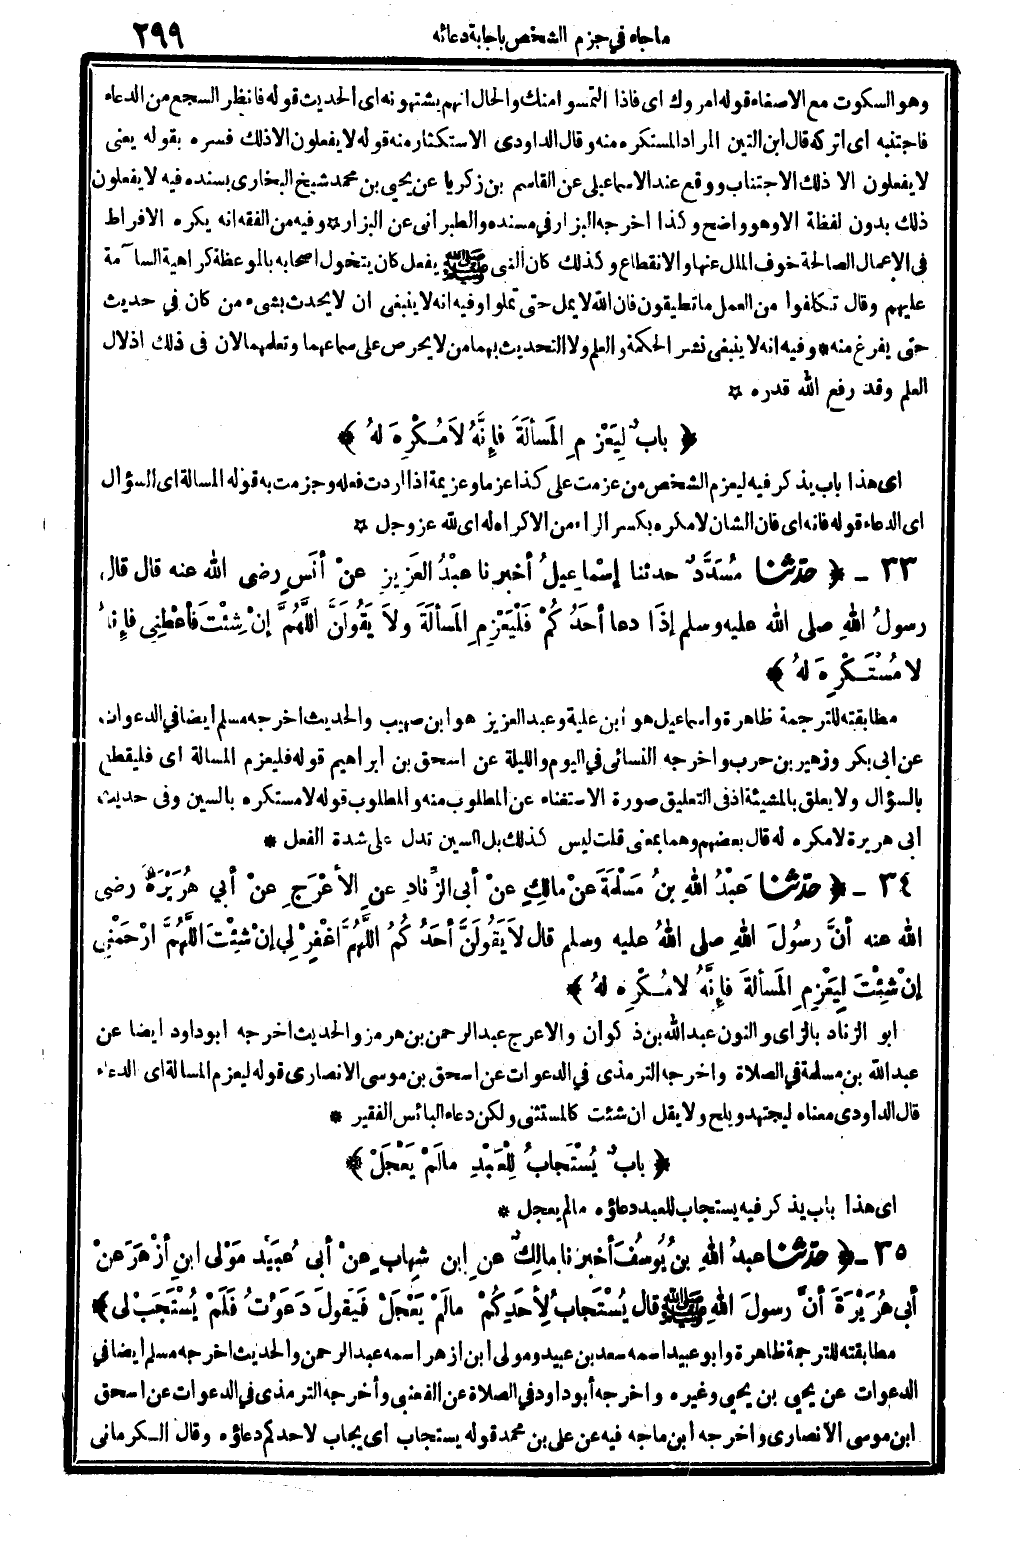 ماجاء في جزم الشخص باجابة دعائه ٢٩٩
وهو السكوت مع الاصغاء قوله امروك اى فاذا التمسوا منك والحال انهم يشتهونه اى الحديث قوله فانظر السجع من الدعاء
فاجتنبه اى اتركه قال ابن التين المراد المستكره منه وقال الداودى الاستكثار منه قوله لا يفعلون الا ذلك فسره بقوله يعنى
لا يفعلون الا ذلك الاجتناب ووقع عند الاسماعيلى عن القاسم بن زكريا عن يحيى بن محمد شيخ البخارى بسنده فيه لا يفعلون
ذلك بدون لفظة الا وهو واضح وكذا اخرجه البزار في مسنده والطبرانى عن البزار ☆ وفيه من الفقه انه يكره الافراط
فى الاعمال الصالحة خوف الملل عنها والانقطاع وكذلك كان النبى ﷺ يفعل كان يتخول اصحابه بالموعظة كراهية السآمة
عليهم وقال تكلفوا من العمل ما تطيقون فان الله لا يمل حتى تملوا وفيه انه لا ينبغى ان لا يحدث بشىء من كان في حديث
حتى يفرغ منه * وفيه انه لا ينبغى نشر الحكمة والعلم ولا التحديث بهما من لا يحرص على سماعهما وتعلمهما لان فى ذلك اذلال
العلم وقد رفع الله قدره ☆
﴿ بابٌ لِيَعْزِمِ المَسألَةَ فإِنَّهُ لاَ مُكْرِهَ لهُ ﴾
اى هذا باب يذكر فيه ليعزم الشخص من عزمت على كذا عزما وعزيمة اذا اردت فعله وجزمت به قوله المسالة اى السؤال
اى الدعاء قوله فانه اى فان الشان لا مكره بكسر الراء من الاكراه له اى لله عز وجل ☆
٣٣ ـ ﴿ حدّثنا مُسَدَّدٌ حدثنا إسْماعِيلُ أخبرنا عبدُ العَزِيزِ عنْ أنَسٍ رضى الله عنه قال قال
رسولُ اللهِ صلى الله عليه وسلم إذَا دعا أحَدُكُمْ فَلْيَعْزِمِ المَسألَةَ ولاَ يَقُولَنَّ اللَّهُمَّ إنْ شِئْتَ فأعْطِنِى فإنهُ
لا مُسْتَكْرِهَ لهُ ﴾
مطابقته للترجمة ظاهرة واسماعيل هو ابن علية وعبد العزيز هو ابن صهيب والحديث اخرجه مسلم ايضا في الدعوات
عن ابى بكر وزهير بن حرب واخرجه النسائى في اليوم والليلة عن اسحق بن ابراهيم قوله فليعزم المسالة اى فليقطع
بالسؤال ولا يعلق بالمشيئة اذ فى التعليق صورة الاستغناء عن المطلوب منه والمطلوب قوله لا مستكره بالسين وفى حديث
ابى هريرة لا مكره له قال بعضهم وهما بمعنى قلت ليس كذلك بل السين تدل على شدة الفعل *
٣٤ ـ ﴿ حدّثنا عَبْدُ اللهِ بنُ مَسْلَمَةَ عنْ مالِكٍ عنْ أبى الزِّنادِ عنِ الأعْرَجِ عنْ أبي هُرَيْرَةَ رضى
الله عنه أنَّ رسُولَ اللهِ صلى اللهُ عليه وسلم قال لاَ يَقُولَنَّ أحَدُكُمُ اللَّهُمَّ اغْفِرْ لِي إنْ شِئْتَ اللَّهُمَّ ارْحَمْنِى
إنْ شِئْتَ لِيَعْزِمِ المَسألةَ فإنَّهُ لا مُكْرِهَ لهُ ﴾
ابو الزناد بالزاى والنون عبد الله بن ذكوان والاعرج عبد الرحمن بن هرمز والحديث اخرجه ابو داود ايضا عن
عبد الله بن مسلمة في الصلاة واخرجه الترمذى في الدعوات عن اسحق بن موسى الانصارى قوله ليعزم المسالة اى الدعاء
قال الداودى معناه ليجتهد ويلح ولا يقل ان شئت كالمستثنى ولكن دعاء البائس الفقير *
﴿ بابٌ يُسْتَجابُ لِلْعَبْدِ مالَمْ يَعْجَلْ ﴾
اى هذا باب يذكر فيه يستجاب للعبد دعاؤه مالم يعجل *
٣٥ ـ ﴿ حدّثنا عبدُ اللهِ بنُ يُوسُفَ أخبرنا مالِكٌ عنِ ابنِ شِهابٍ عنْ أبى عُبَيْدٍ مَوْلى ابنِ أزْهَرَ عنْ
أبى هُرَيْرَةَ أنَّ رسولَ اللهِ ﷺ قال يُسْتَجابُ لِأحَدِكُمْ مالَمْ يَعْجَلْ فَيَقولَ دَعَوْتُ فَلَمْ يُسْتَجَبْ لى ﴾
مطابقته للترجمة ظاهرة وابو عبيد اسمه سعد بن عبيد ومولى ابن ازهر اسمه عبد الرحمن والحديث اخرجه مسلم ايضا في
الدعوات عن يحيى بن يحيى وغيره واخرجه أبو داود في الصلاة عن القعنبى وأخرجه الترمذى في الدعوات عن اسحق
ابن موسى الانصارى واخرجه ابن ماجه فيه عن على بن محمد قوله يستجاب اى يجاب لاحدكم دعاؤه وقال الكرمانى